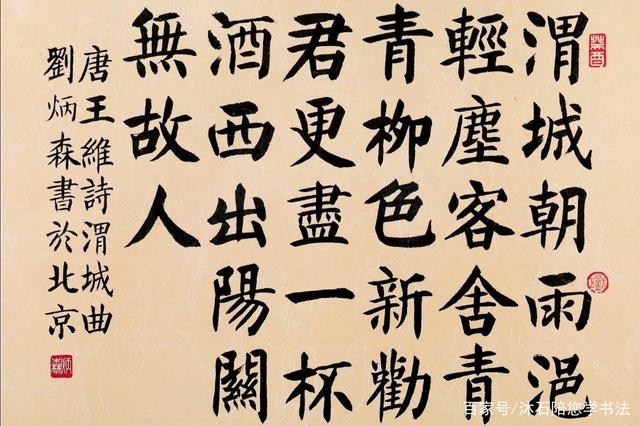 渭城朝雨浥
輕塵客舍青
青柳色新勸
君更盡一杯
酒西出陽關
無故人
唐王維詩渭城曲
劉炳森書於北京
炳森
百家号/沐石陪您学书法